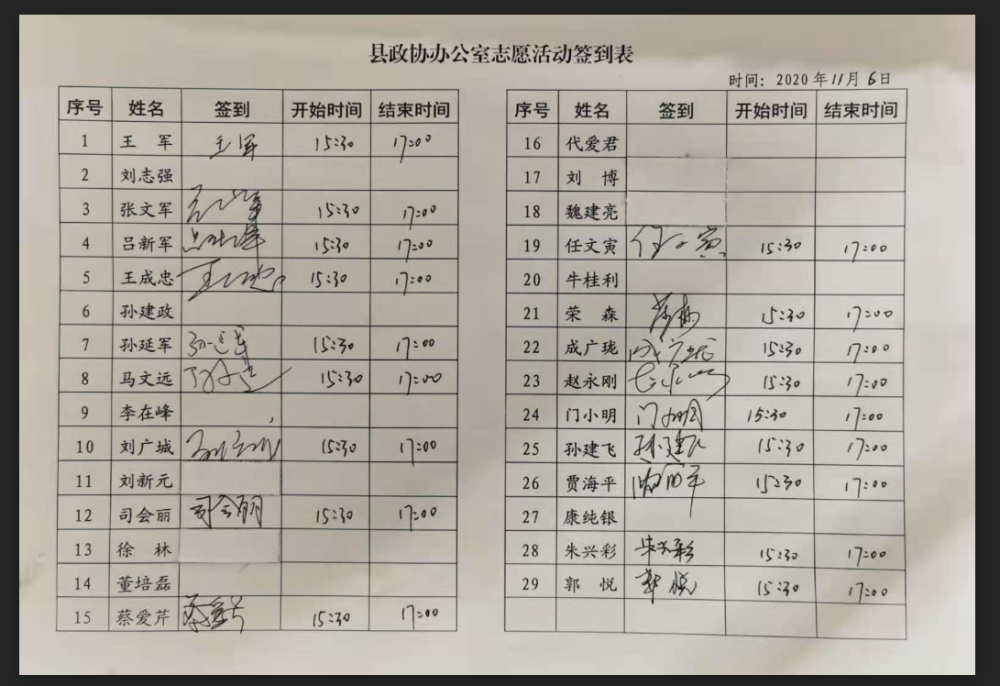 县政协办公室志愿活动签到表
时间：2020年11月6日
序号 姓名 签到 开始时间 结束时间
1 王军 王军 15:30 17:00
2 刘志强
3 张文军 15:30 17:00
4 吕新军 吕新军 15:30 17:00
5 王成忠 王成忠 15:30 17:00
6 孙建政
7 孙延军 孙延军 15:30 17:00
8 马文远 15:30 17:00
9 李在峰
10 刘广城 刘广城 15:30 17:00
11 刘新元
12 司会丽 司会丽 15:30 17:00
13 徐林
14 董培磊
15 蔡爱芹 蔡爱芹 15:30 17:00
序号 姓名 签到 开始时间 结束时间
16 代爱君
17 刘博
18 魏建亮
19 任文寅 任文寅 15:30 17:00
20 牛桂利
21 荣森 荣森 15:30 17:00
22 成广珑 成广珑 15:30 17:00
23 赵永刚 15:30 17:00
24 门小明 门小明 15:30 17:00
25 孙建飞 孙建飞 15:30 17:00
26 贾海平 15:30 17:00
27 康纯银
28 朱兴彩 朱兴彩 15:30 17:00
29 郭悦 郭悦 15:30 17:00